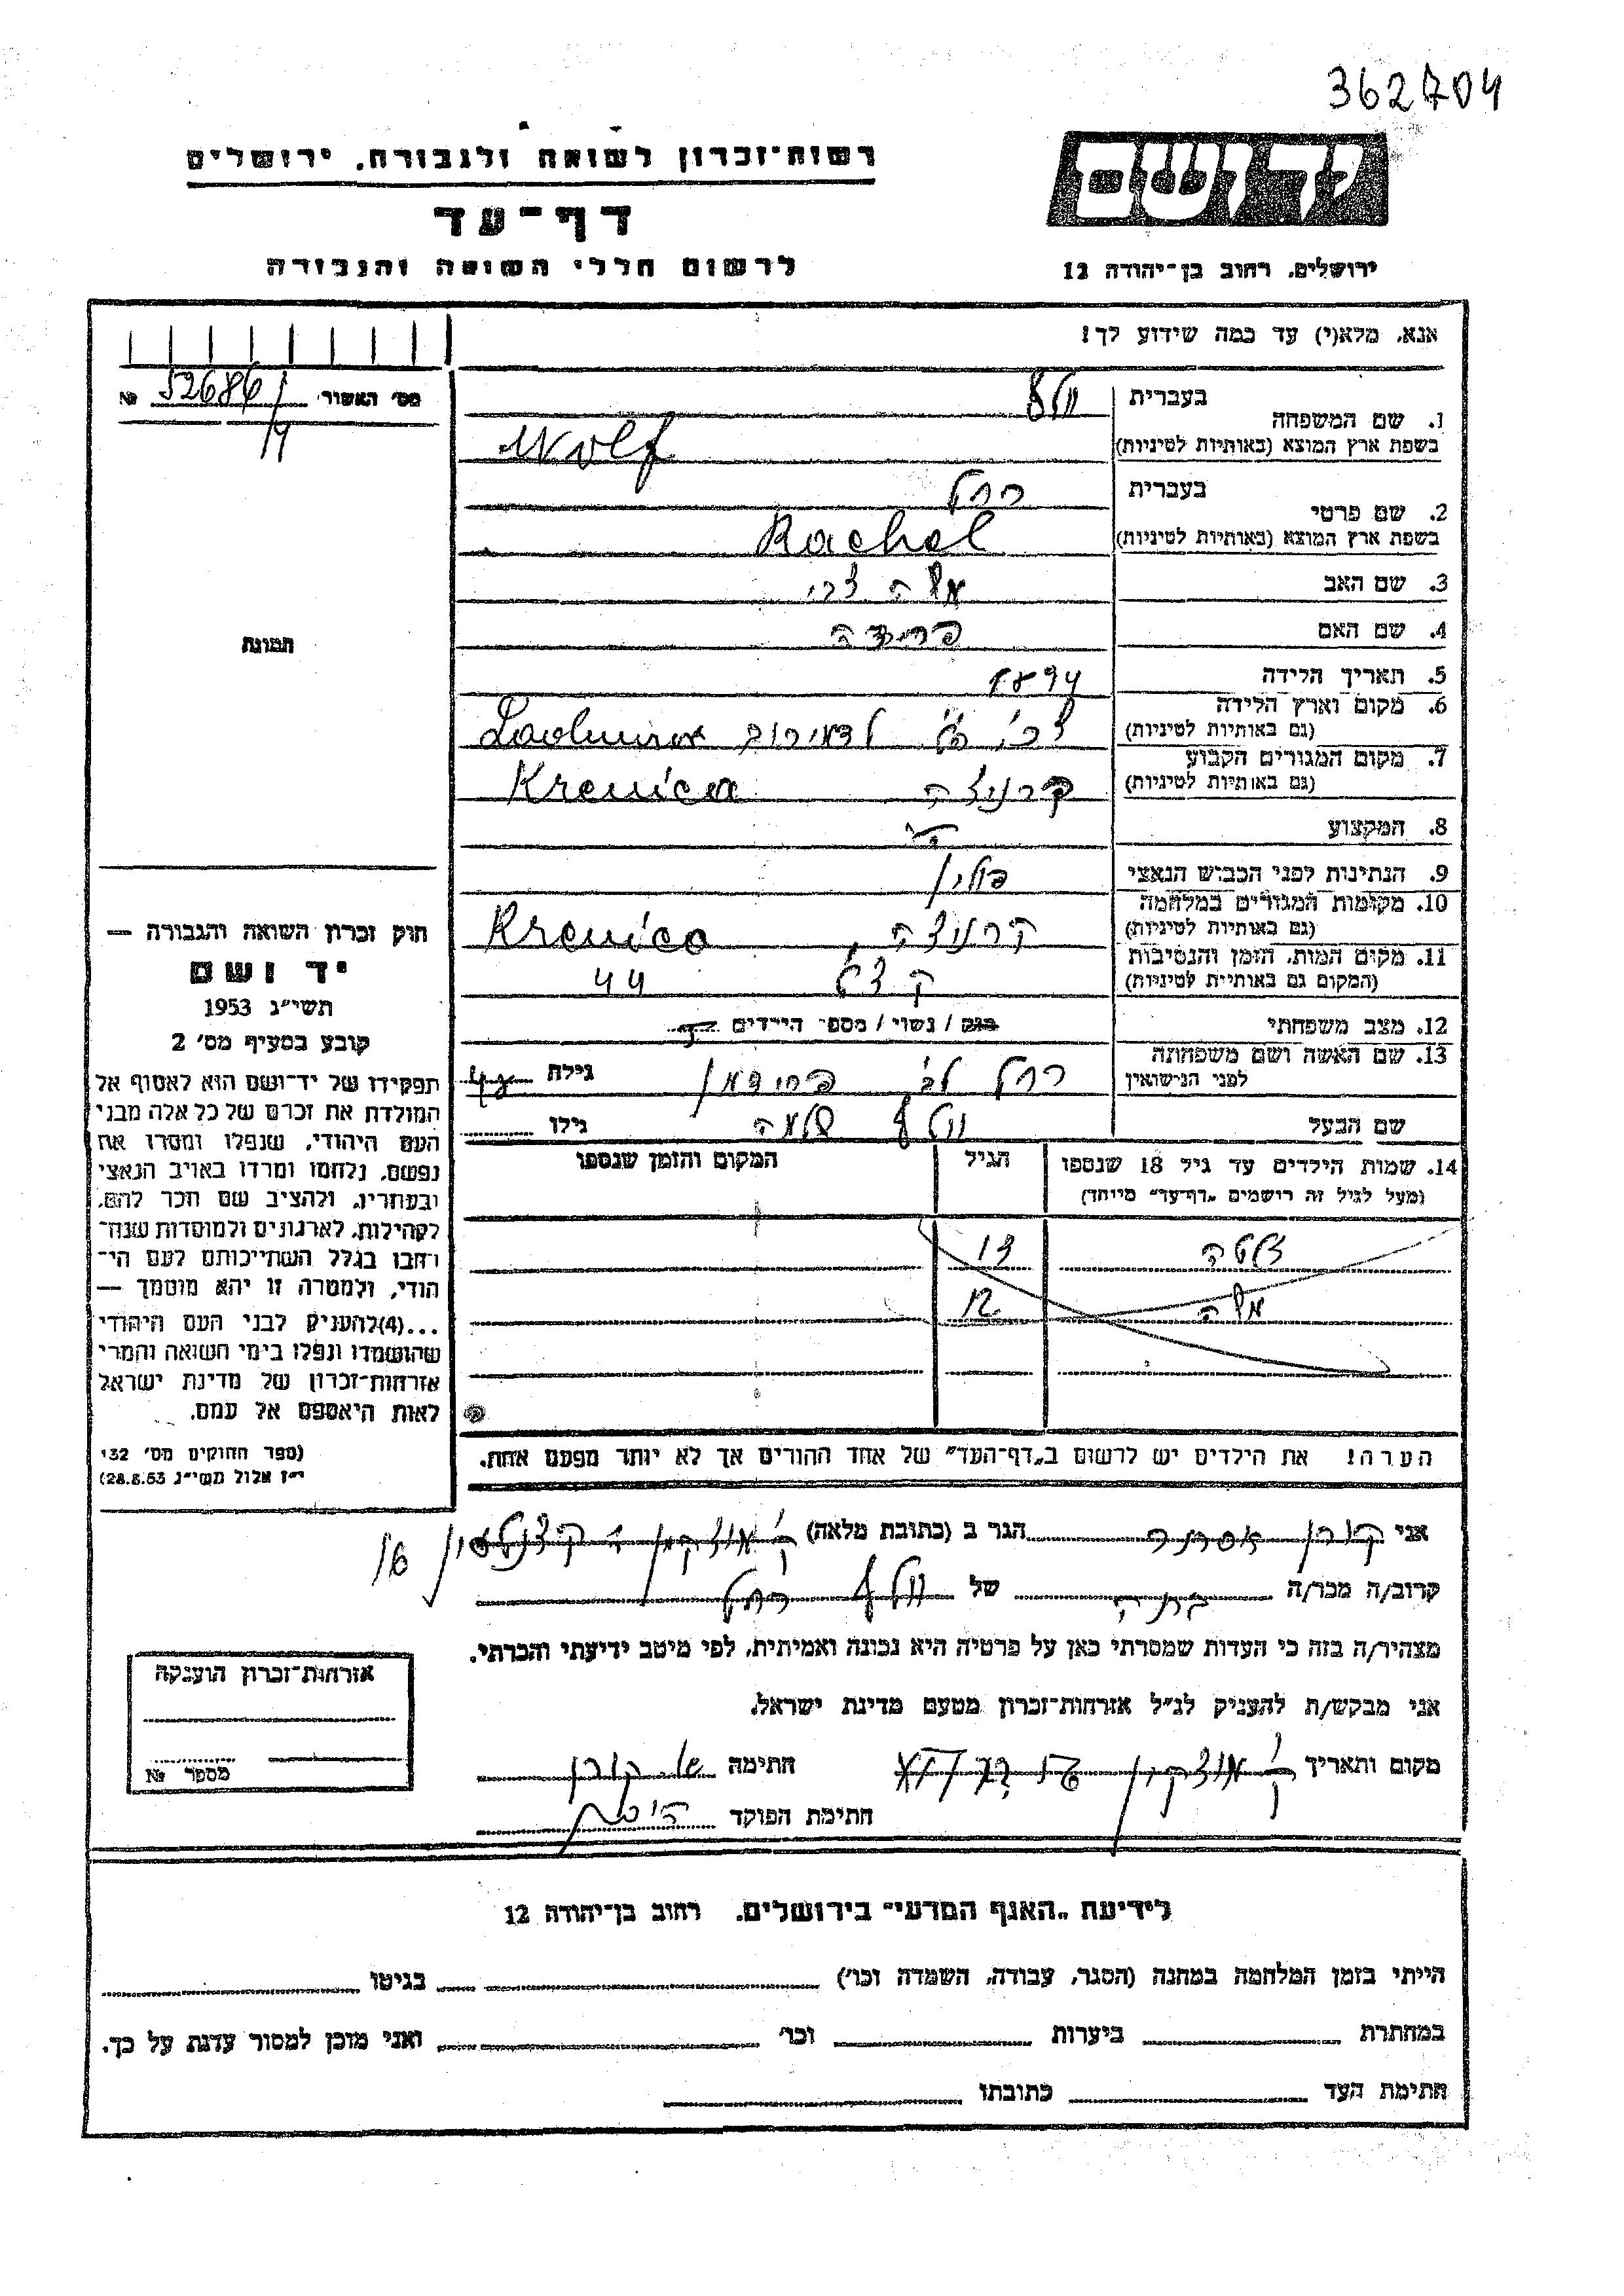 362704
רשות-זכרון לשואה ולגבורה, ירושלים
יד ושם
דף-עד
לרשום חללי השואה והגבורה
ירושלים, רחוב בן-יהודה 12
אנא, מלא(י) עד כמה שידוע לך!
מס' האשור 52686/ №
14
תמונת
1. שם המשפחה
בעברית וולף
בשפת ארץ המוצא (באותיות לטיניות) Wolf
2. שם פרטי
בעברית רחל
בשפת ארץ המוצא (באותיות לטיניות) Rachel
3. שם האב משה צבי
4. שם האם פרידה
5. תאריך הלידה 1894
6. מקום וארץ הלידה
(גם באותיות לטיניות)
7. מקום המגורים הקבוע קרניצה Krenica
(גם באותיות לטיניות)
8. המקצוע
9. הנתינות לפני הכבוש הנאצי פולין
10. מקומות המגורים במלחמה קרניצה Krenica
(גם באותיות לטיניות)
11. מקום המות, הזמן והנסיבות 44
(המקום גם באותיות לטיניות)
12. מצב משפחתי רווק / נשוי / מספר הילדים
13. שם האשה ושם משפחתה רחל לב' גילה
לפני הנישואין
שם הבעל וולף שלמה גילו
14. שמות הילדים עד גיל 18 שנספו הגיל המקום והזמן שנספו
(מעל לגיל זה רושמים "דף-עד" מיוחד)
13
משה 12
הערה! את הילדים יש לרשום ב"דף-העד" של אחד ההורים אך לא יותר מפעם אחת.
חוק זכרון השואה והגבורה —
יד ושם
תשי"ג 1953
קובע בסעיף מס' 2
תפקידו של יד-ושם הוא לאסוף אל
המולדת את זכרם של כל אלה מבני
העם היהודי, שנפלו ומסרו את
נפשם, נלחמו ומרדו באויב הנאצי
ובעוזריו, ולהציב שם וזכר להם,
לקהילות, לארגונים ולמוסדות שנח-
רבו בגלל השתייכותם לעם הי-
הודי, ולמטרה זו יהא מוסמך —
...(4)להעניק לבני העם היהודי
שהושמדו ונפלו בימי השואה והמרי
אזרחות-זכרון של מדינת ישראל
לאות היאספם אל עמם.
(ספר החוקים מס' 132
י"ז אלול תשי"ג 28.8.53)
אני קורן אסתר הגר ב (כתובת מלאה) ק' מוצקין
קרוב/ה מכר/ה בתה של וולף רחל
מצהיר/ה בזה כי העדות שמסרתי כאן על פרטיה היא נכונה ואמיתית, לפי מיטב ידיעתי והכרתי.
אני מבקש/ת להעניק לנ"ל אזרחות-זכרון מטעם מדינת ישראל.
מקום ותאריך ק' מוצקין חתימה קורן
חתימת הפוקד
אזרחות-זכרון הוענקה
מספר №
לידיעת "האגף המדעי" בירושלים, רחוב בן-יהודה 12
הייתי בזמן המלחמה במחנה (הסגר, עבודה, השמדה וכו') בגיטו
במחתרת ביערות וכו' ואני מוכן למסור עדות על כך.
חתימת העד כתובתו